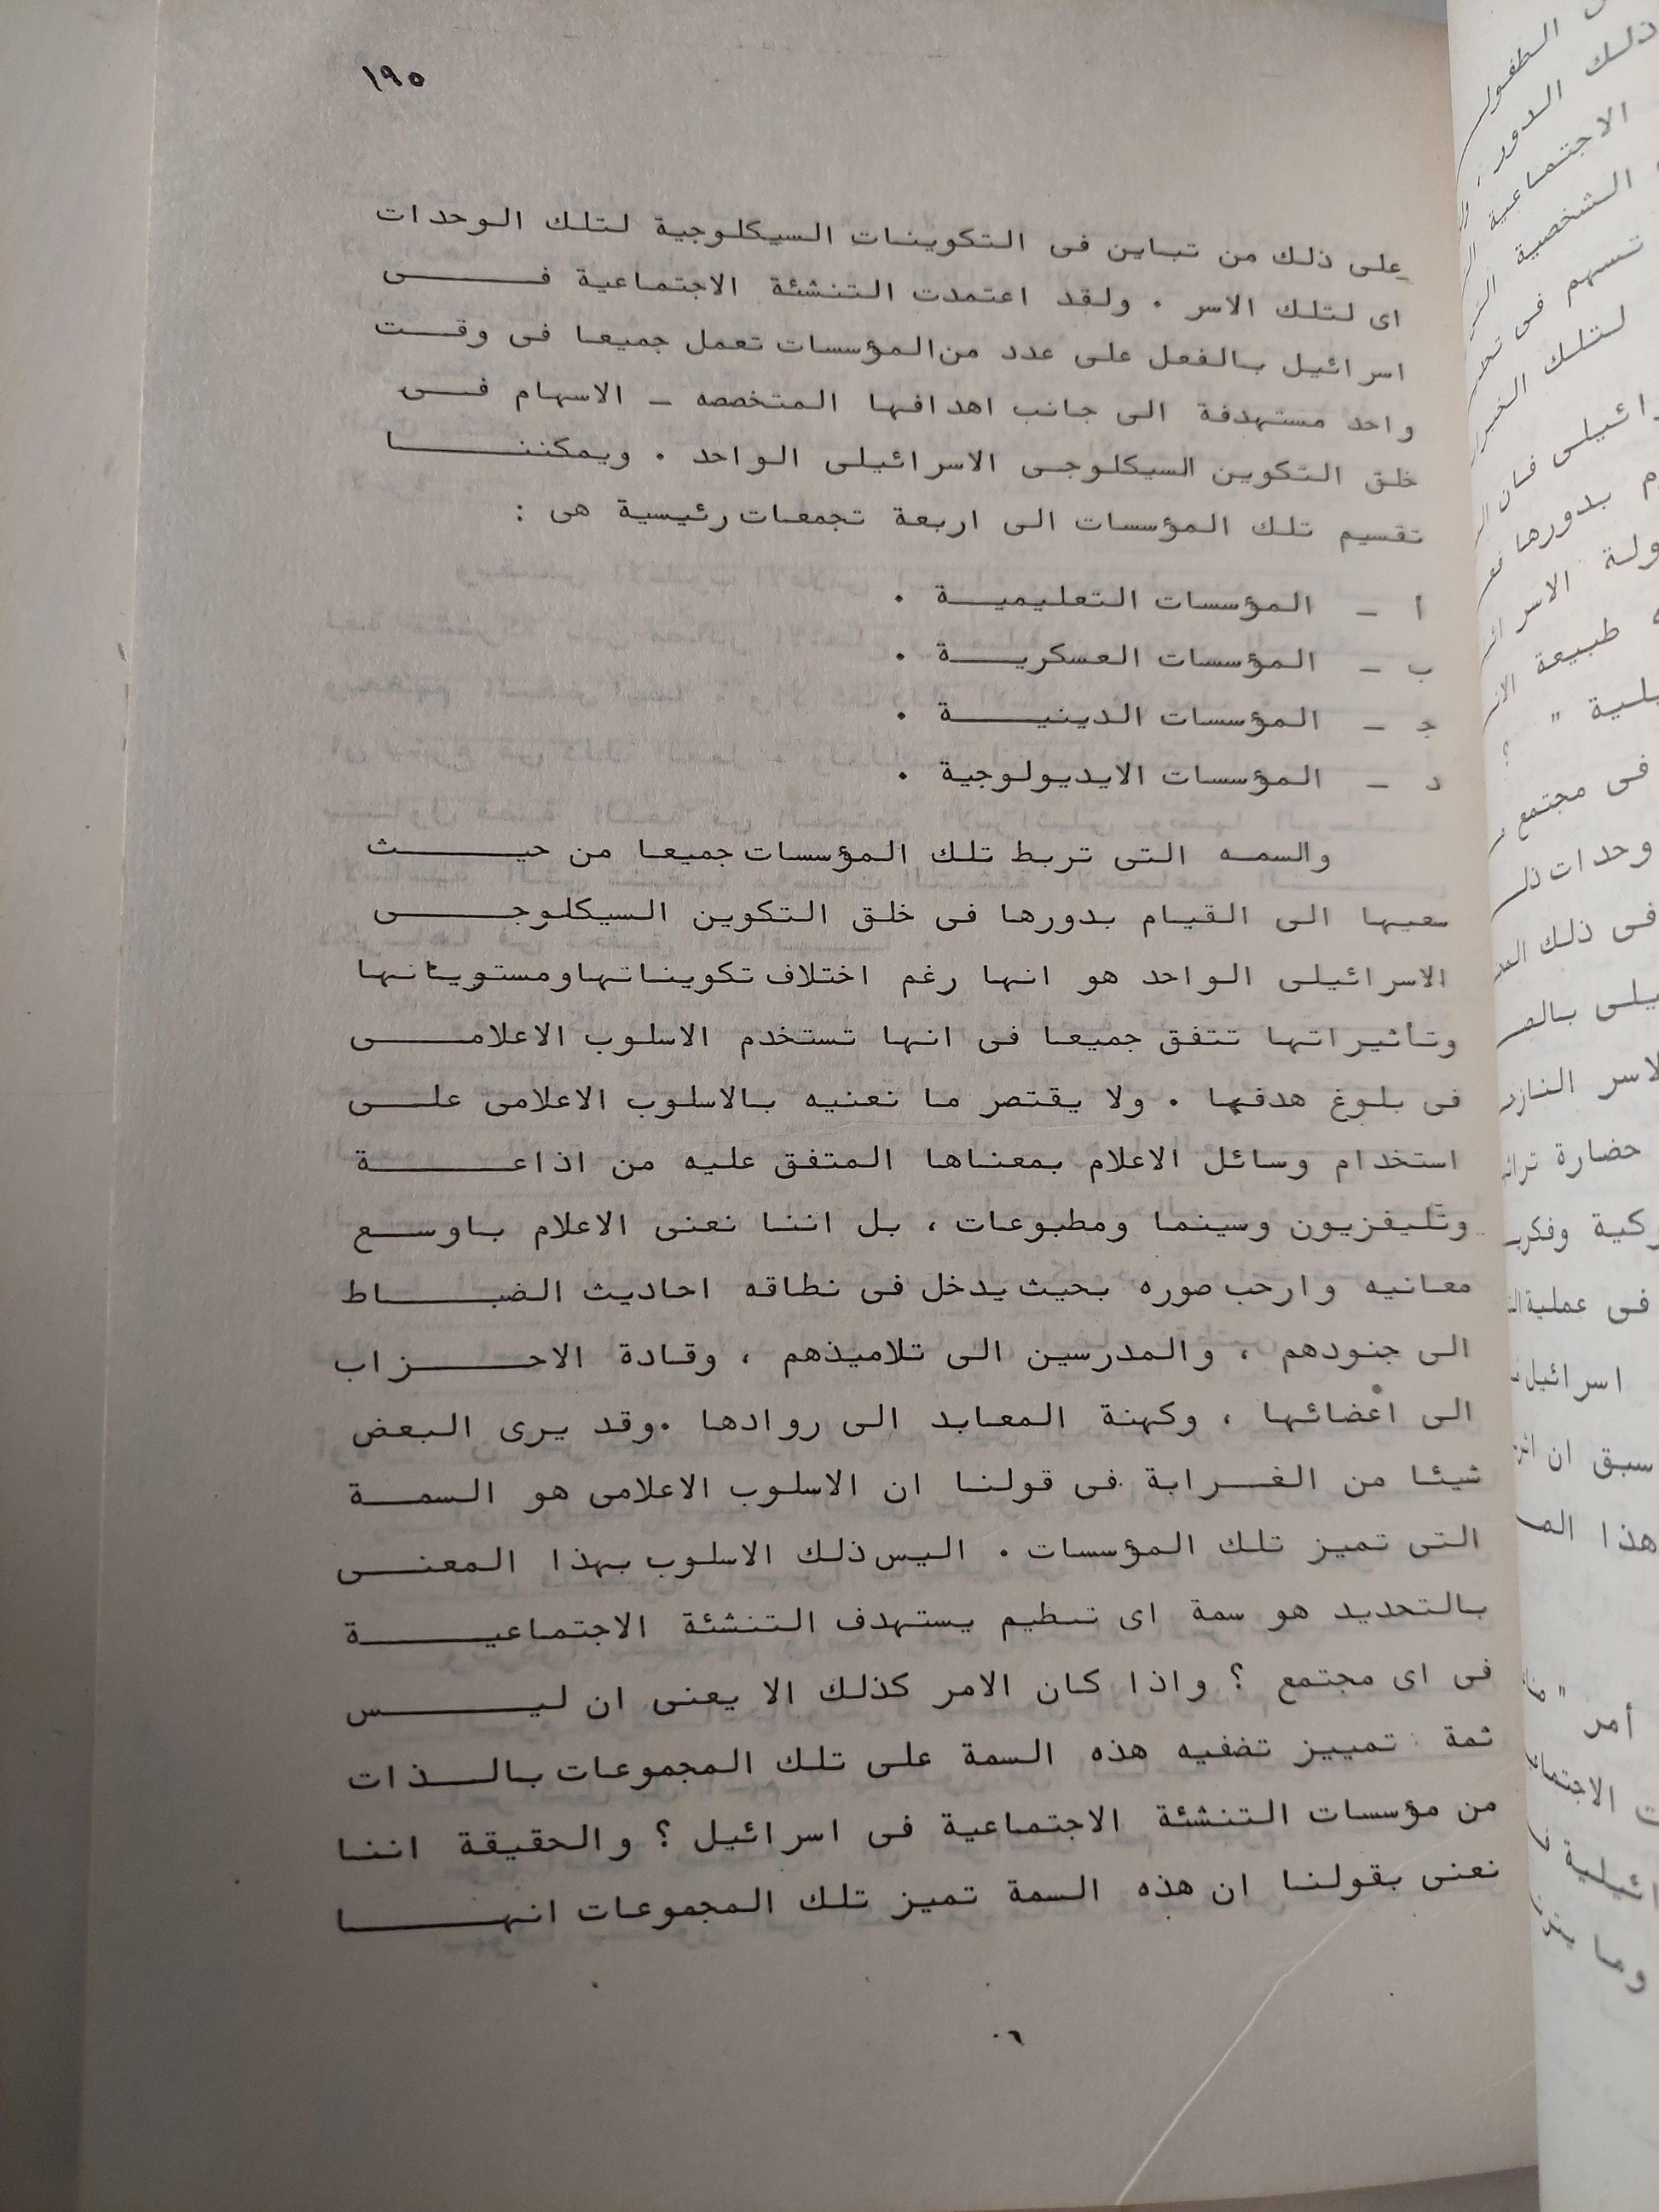 ١٩٥
على ذلك من تباين فى التكوينات السيكلوجية لتلك الوحدات
اى لتلك الاسر . ولقد اعتمدت التنشئة الاجتماعية فى
اسرائيل بالفعل على عدد من المؤسسات تعمل جميعا فى وقت
واحد مستهدفة الى جانب اهدافها المتخصصه - الاسهام فى
خلق التكوين السيكلوجى الاسرائيلى الواحد . ويمكننا
تقسيم تلك المؤسسات الى اربعة تجمعات رئيسية هى :
أ - المؤسسات التعليمية .
ب - المؤسسات العسكرية .
ج - المؤسسات الدينية .
د - المؤسسات الايديولوجية .
والسمه التى تربط تلك المؤسسات جميعا من حيث
سعيها الى القيام بدورها فى خلق التكوين السيكلوجى
الاسرائيلى الواحد هو انها رغم اختلاف تكويناتها ومستوياتها
وتأثيراتها تتفق جميعا فى انها تستخدم الاسلوب الاعلامى
فى بلوغ هدفها . ولا يقتصر ما نعنيه بالاسلوب الاعلامى على
استخدام وسائل الاعلام بمعناها المتفق عليه من اذاعة
وتليفزيون وسينما ومطبوعات ، بل اننا نعنى الاعلام باوسع
معانيه وارحب صوره بحيث يدخل فى نطاقه احاديث الضباط
الى جنودهم ، والمدرسين الى تلاميذهم ، وقادة الاحزاب
الى اعضائها ، وكهنة المعابد الى روادها .وقد يرى البعض
شيئا من الغرابة فى قولنا ان الاسلوب الاعلامى هو السمة
التى تميز تلك المؤسسات . اليس ذلك الاسلوب بهذا المعنى
بالتحديد هو سمة اى تنظيم يستهدف التنشئة الاجتماعية
فى اى مجتمع ؟ واذا كان الامر كذلك الا يعنى ان ليس
ثمة تمييز تضفيه هذه السمة على تلك المجموعات بالذات
من مؤسسات التنشئة الاجتماعية فى اسرائيل ؟ والحقيقة اننا
نعنى بقولنا ان هذه السمة تميز تلك المجموعات انها
ذلك الدور
الاجتماعية
الشخصية
تسهم فى
لتلك
بدورها
طبيعة
فى مجتمع
فى ذلك
حضارة
فى عملية
اسرائيل
سبق ان
هذا
أمر
وما